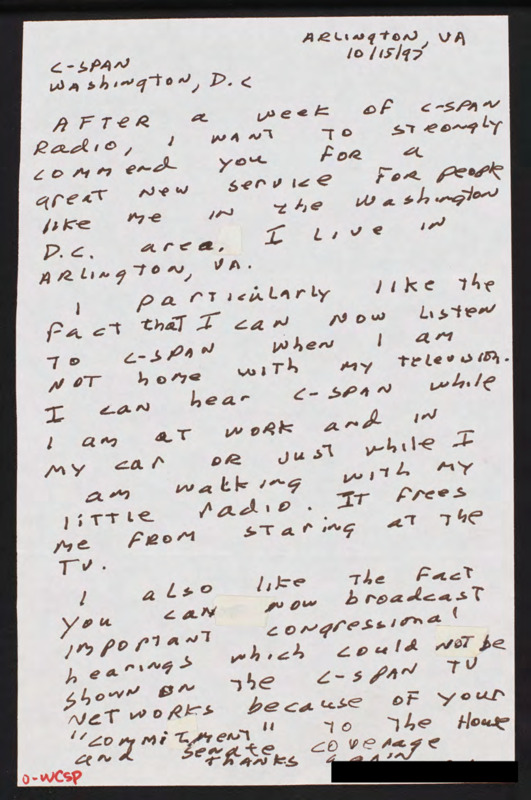 ARLINGTON, VA
10/15/97
C-SPAN
WASHINGTON, D.C
AFTER a week OF C-SPAN
Radio, I WANT TO STRONGLY
commend you FOR a
great New service FOR people
like me IN the Washington
D.C. area. I LIVE IN
ARLINGTON, VA.
I particularly like the
Fact that I can NOW LISTEN
TO C-SPAN when I am
NOT home WITH MY television.
I can hear C-SPAN while
I am at WORK and IN
MY car OR JUST while I
am walking with MY
little radio. IT Frees
me FROM staring at the
TV.
I also like The Fact
you can now broadcast
IMPORTANT congressional
hearings which could NOT be
shown ON The C-SPAN TV
NETWORKS because OF YOUR
"COMMITMENT" TO The House
and Senate coverage
THANKS again
O-WCSP